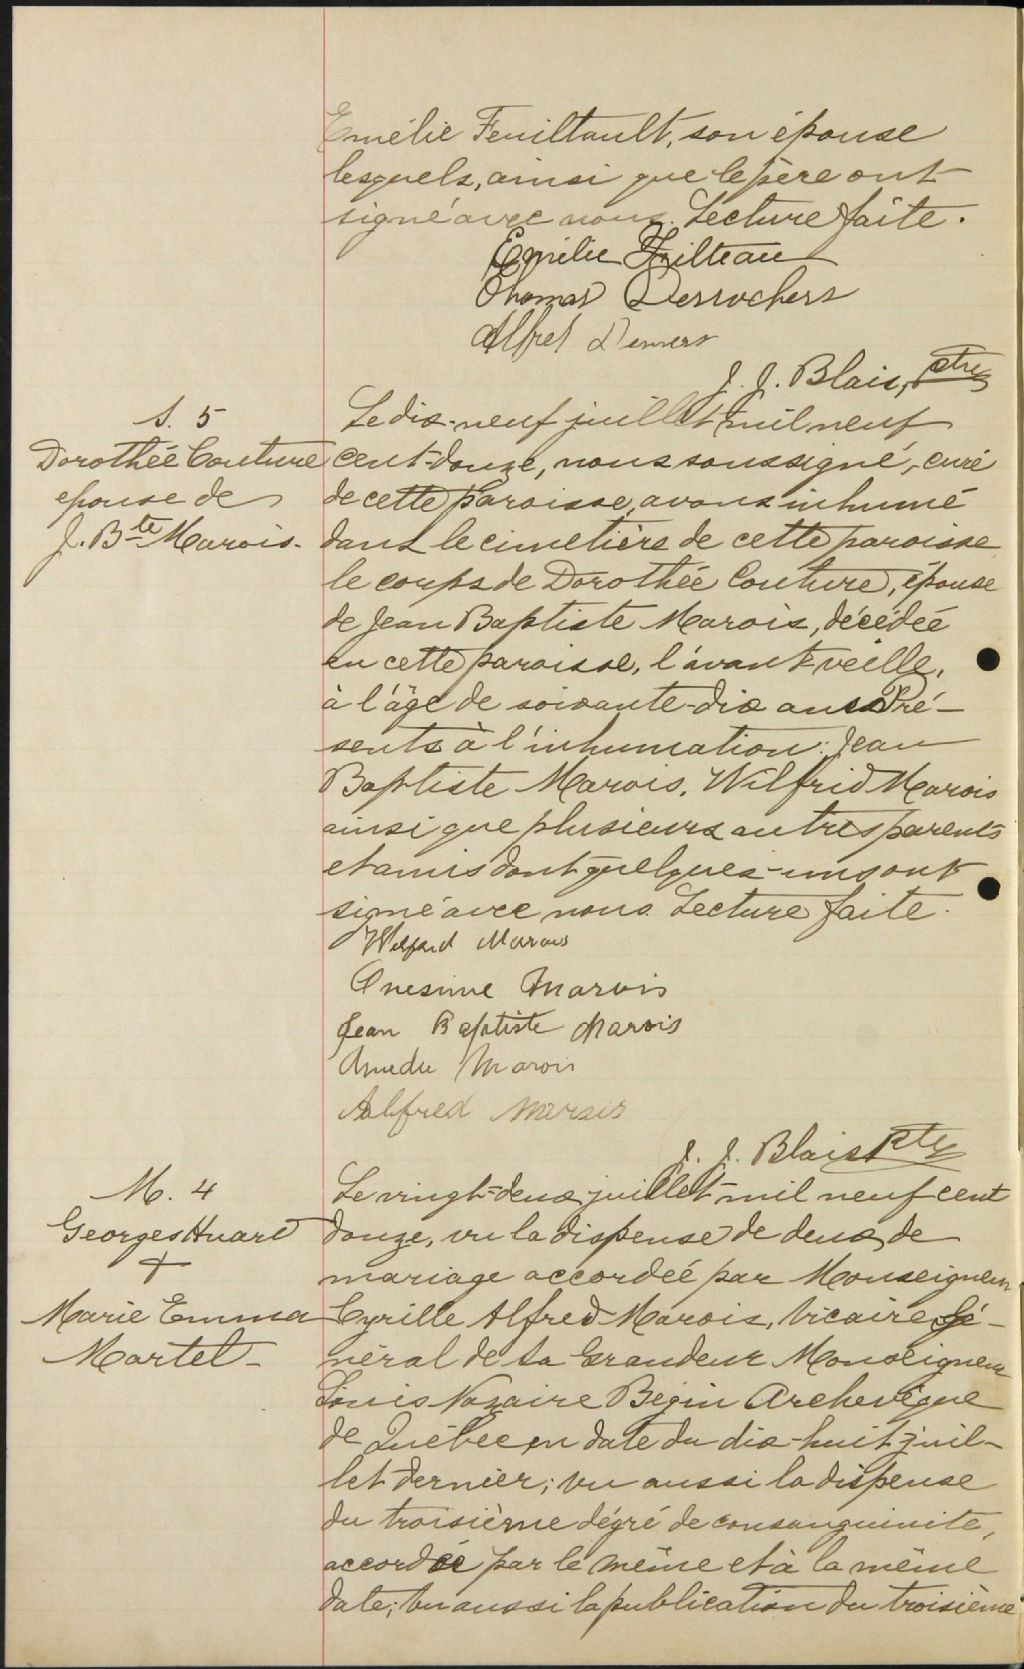 Emélie Feuiltault, son épouse
lesquels, ainsi que le père ont
signé avec nous. Lecture faite.
Emilie Filteau
Thomas Desrochers
Alfred Demers
J. J. Blais, ptre
S. 5
Dorothée Couture
épouse de
J. Bte Marois.
Le dix-neuf juillet mil neuf
cent-douze, nous soussigné, curé
de cette paroisse, avons inhumé
dans le cimetière de cette paroisse
le corps de Dorothée Couture, épouse
de Jean Baptiste Marois, décédée
en cette paroisse, l'avant-veille,
à l'âge de soixante-dix ans. Pré-
sents à l'inhumation: Jean
Baptiste Marois, Wilfrid Marois
ainsi que plusieurs autres parents
et amis dont quelques-uns ont
signé avec nous. Lecture faite.
Wilfrid Marois
Onesime Marois
Jean Baptiste Marois
Amedu Marois
Alfred Marois
J. J. Blais Ptre
M. 4
Georges Huard
+
Marie Emma
Martel-
Le vingt-deux juillet mil neuf cent
douze, vu la dispense de deux de
mariage accordée par Monseigneur
Cyrille Alfred Marois, vicaire Gé-
néral de Sa Grandeur Monseigneur
Louis Nazaire Begin Archevêque
de Québec en date du dix-huit juil-
let dernier; vu aussi la dispense
du troisième dégré de consanguinité,
accordée par le même et à la même
date; vu aussi la publication du troisième